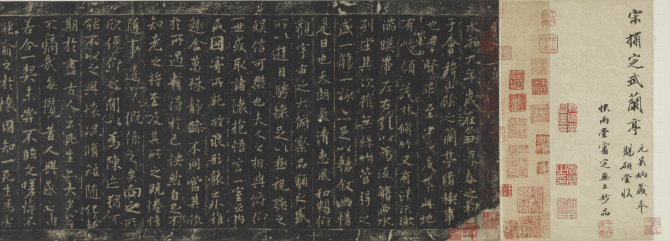 宋搨定武蘭亭
元吳炳藏本
晚研堂收
快雨堂審定無上妙品
和九年歲在癸丑暮春之初
于會稽山陰之蘭亭脩稧事
也羣賢畢至少長咸集此地
有峻領茂林脩竹又有清流激
湍暎帶左右引以為流觴曲水
列坐其次
盛一觴一詠亦足以暢敘幽情
是日也天朗氣清惠風和暢仰
觀宇宙之大俯察品類之盛
所以遊目騁懷足以極視聽之
娛信可樂也夫人之相與俯仰
一世或取諸懷抱悟言一室之內
或因寄所託放浪形骸之外雖
趣舍萬殊靜躁不同當其欣
於所遇蹔得於己快然自足不
知老之將至及其所之既惓情
隨事遷感慨係之矣向之所
欣俛仰之閒以為陳迹猶不
能不以之興懷況脩短隨化終
期於盡古人云死生亦大矣豈
不痛哉每攬昔人興感之由
若合一契未嘗不臨文嗟悼不
能喻之於懷固知一死生為虛